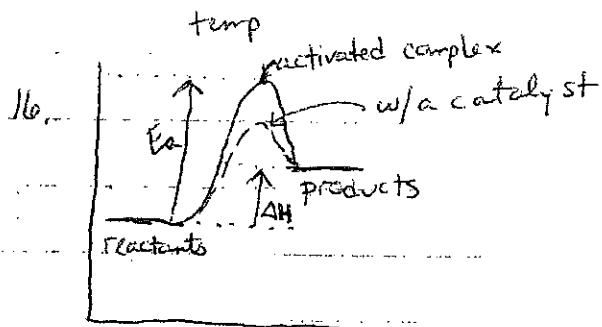 temp
activated complex
16.
w/a catalyst
Ea
products
ΔH
reactants